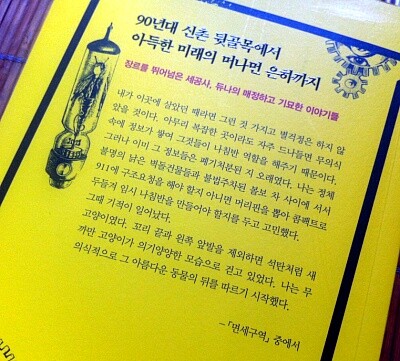 90년대 신촌 뒷골목에서
아득한 미래의 머나먼 은하까지
장르를 뛰어넘은 세공사, 듀나의 매정하고 기묘한 이야기들
내가 이곳에 살았던 때라면 그런 것 가지고 벌걱정은 하지 않
았을 것이다. 아무리 복잡한 곳이라도 자주 드나들면 무의식
속에 정보가 쌓여 그것들이 나침반 역할을 해주기 때문이다.
그러나 이미 그 정보들은 폐기처분된 지 오래였다. 나는 정체
불명의 낡은 벽돌건물들과 불법주차된 볼보 차 사이에 서서
911에 구조요청을 해야 할지 아니면 머리핀을 뽑아 콤팩트로
두들겨 임시 나침반을 만들어야 할지를 두고 고민했다.
그때 기적이 일어났다.
고양이였다. 꼬리 끝과 왼쪽 앞발을 제외하면 석탄처럼 새
까만 고양이가 의기양양한 모습으로 걷고 있었다. 나는 무
의식적으로 그 아름다운 동물의 뒤를 따르기 시작했다.
—「면세구역」 중에서